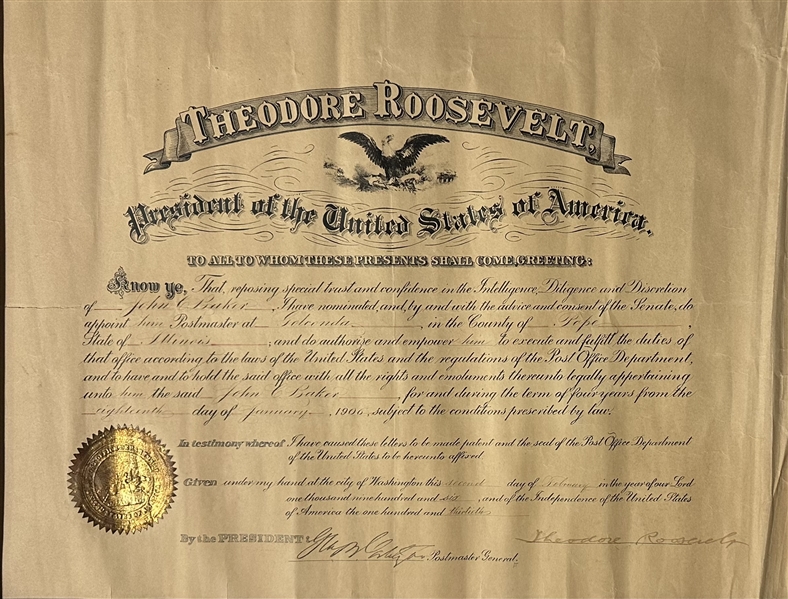 THEODORE ROOSEVELT,
President of the United States of America.
TO ALL TO WHOM THESE PRESENTS SHALL COME, GREETING:
Know ye, That, reposing special trust and confidence in the Intelligence, Diligence and Discretion
of John C Baker, I have nominated, and, by and with the advice and consent of the Senate, do
appoint him Postmaster at Golconda, in the County of Pope,
State of Illinois; and do authorise and empower him to execute and fulfill the duties of
that office according to the laws of the United States and the regulations of the Post Office Department,
and to have and to hold the said office with all the rights and emoluments thereunto legally appertaining
unto him the said John C Baker, for and during the term of four years from the
eighteenth day of January, 1906, subject to the conditions prescribed by law.
In testimony whereof I have caused these letters to be made patent and the seal of the Post Office Department
of the United States to be hereunto affixed
Given under my hand at the city of Washington this second day of February in the year of our Lord
one thousand nine hundred and six, and of the Independence of the United States
of America the one hundred and thirtieth
By the PRESIDENT: Theodore Roosevelt
Postmaster General.